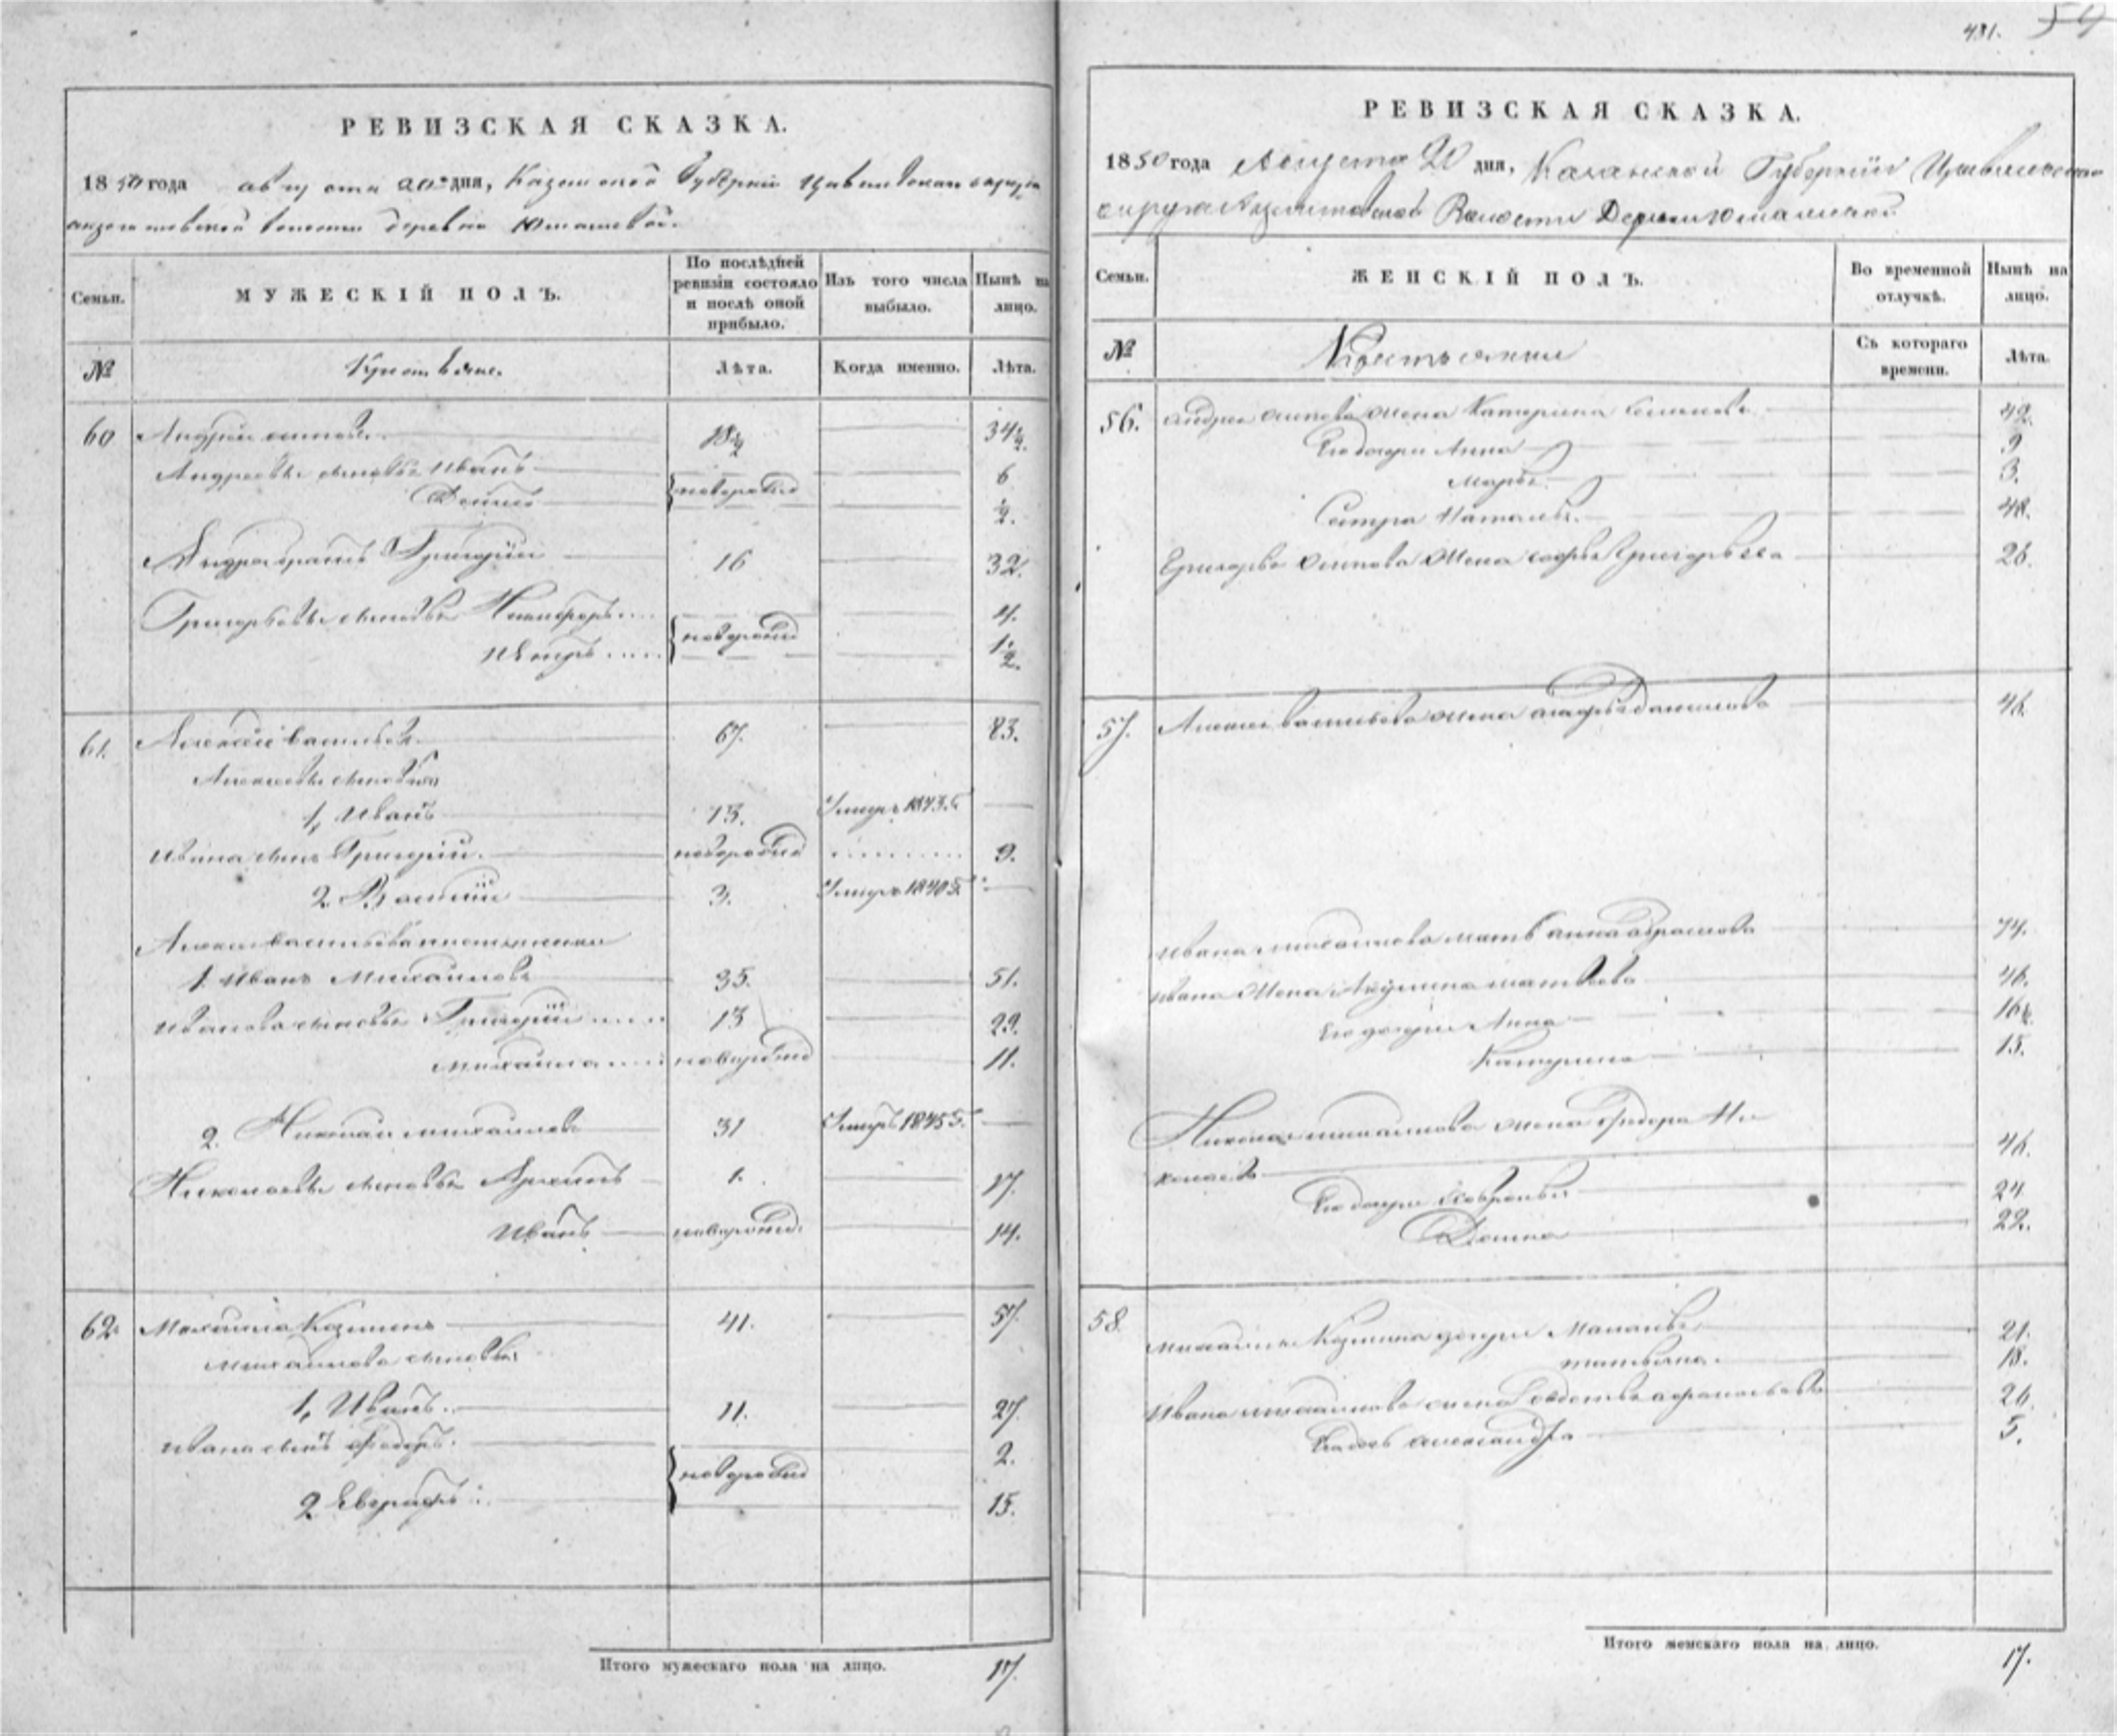 РЕВИЗСКАЯ СКАЗКА.
1850 года августа 20 дня, Казанской Губернии Цивильскаго округа
волости деревни Юманаевой
Семьи. МУЖЕСКІЙ ПОЛЪ. По послѣдней ревизіи состояло и послѣ оной прибыло. Изъ того числа выбыло. Нынѣ на лицо.
№ Крестьяне. Лѣта. Когда именно. Лѣта.
60 Андрей Осиповъ 18½ 34½.
Андреевы сыновья Иванъ 6
Денисъ новорожд ½.
Андрея братъ Григорій 16 32.
Григорьевы сыновья Никифоръ 4.
Петръ новорожд 1½.
61. Алексей Васильевъ 67. 83.
Алексеевы сыновья
1, Иванъ 13. Умеръ 1843 г.
Ивана сынъ Григорій. новорожд 9.
2. Василій 3. Умеръ 1840 г.
Алексея Васильева племянники
1. Иванъ Михайловъ 35. 51.
Ивановы сыновья Григорій 13 29.
Михайла новорожд 11.
2. Николай Михайловъ 31 Умеръ 1845 г.
Николаевы сыновья Архипъ 1. 17.
Иванъ новорожд. 14.
62. Михайла Козминъ 41. 57.
Михайловы сыновья
1, Иванъ. 11. 27.
Ивана сынъ Федоръ. 2.
2 Евграфъ новорожд 15.
Итого мужескаго пола на лицо. 17.
481. 54
РЕВИЗСКАЯ СКАЗКА.
1850 года Августа 20 дня, Казанской Губерніи Цивильскаго
округа Волости Деревни
Семьи. ЖЕНСКІЙ ПОЛЪ. Во временной отлучкѣ. Нынѣ на лицо.
№ Крестьянки Съ котораго времени. Лѣта.
56. Андрея Осипова жена Катерина Семенова 42.
Его дочери Анна 9
Марья 3.
Сестра Наталья. 48.
Григорья Осипова жена Софья Григорьева 26.
57. Алексея Васильева жена Данилова 46.
Ивана Михайлова мать Анна Абрамова 74.
Ивана жена Акулина Матвеева 46.
Его дочери Анна 16½.
Катерина 15.
Николая Михайлова жена Федора Ни
колаева 46.
Его дочери Хавронья 24
Домна 22.
58. Михайлы Козмина дочери Маланья 21.
Татьяна. 18.
Ивана Михайлова жена Афанасьева 26.
Его дочь Александра 5.
Итого женскаго пола на лицо. 17.